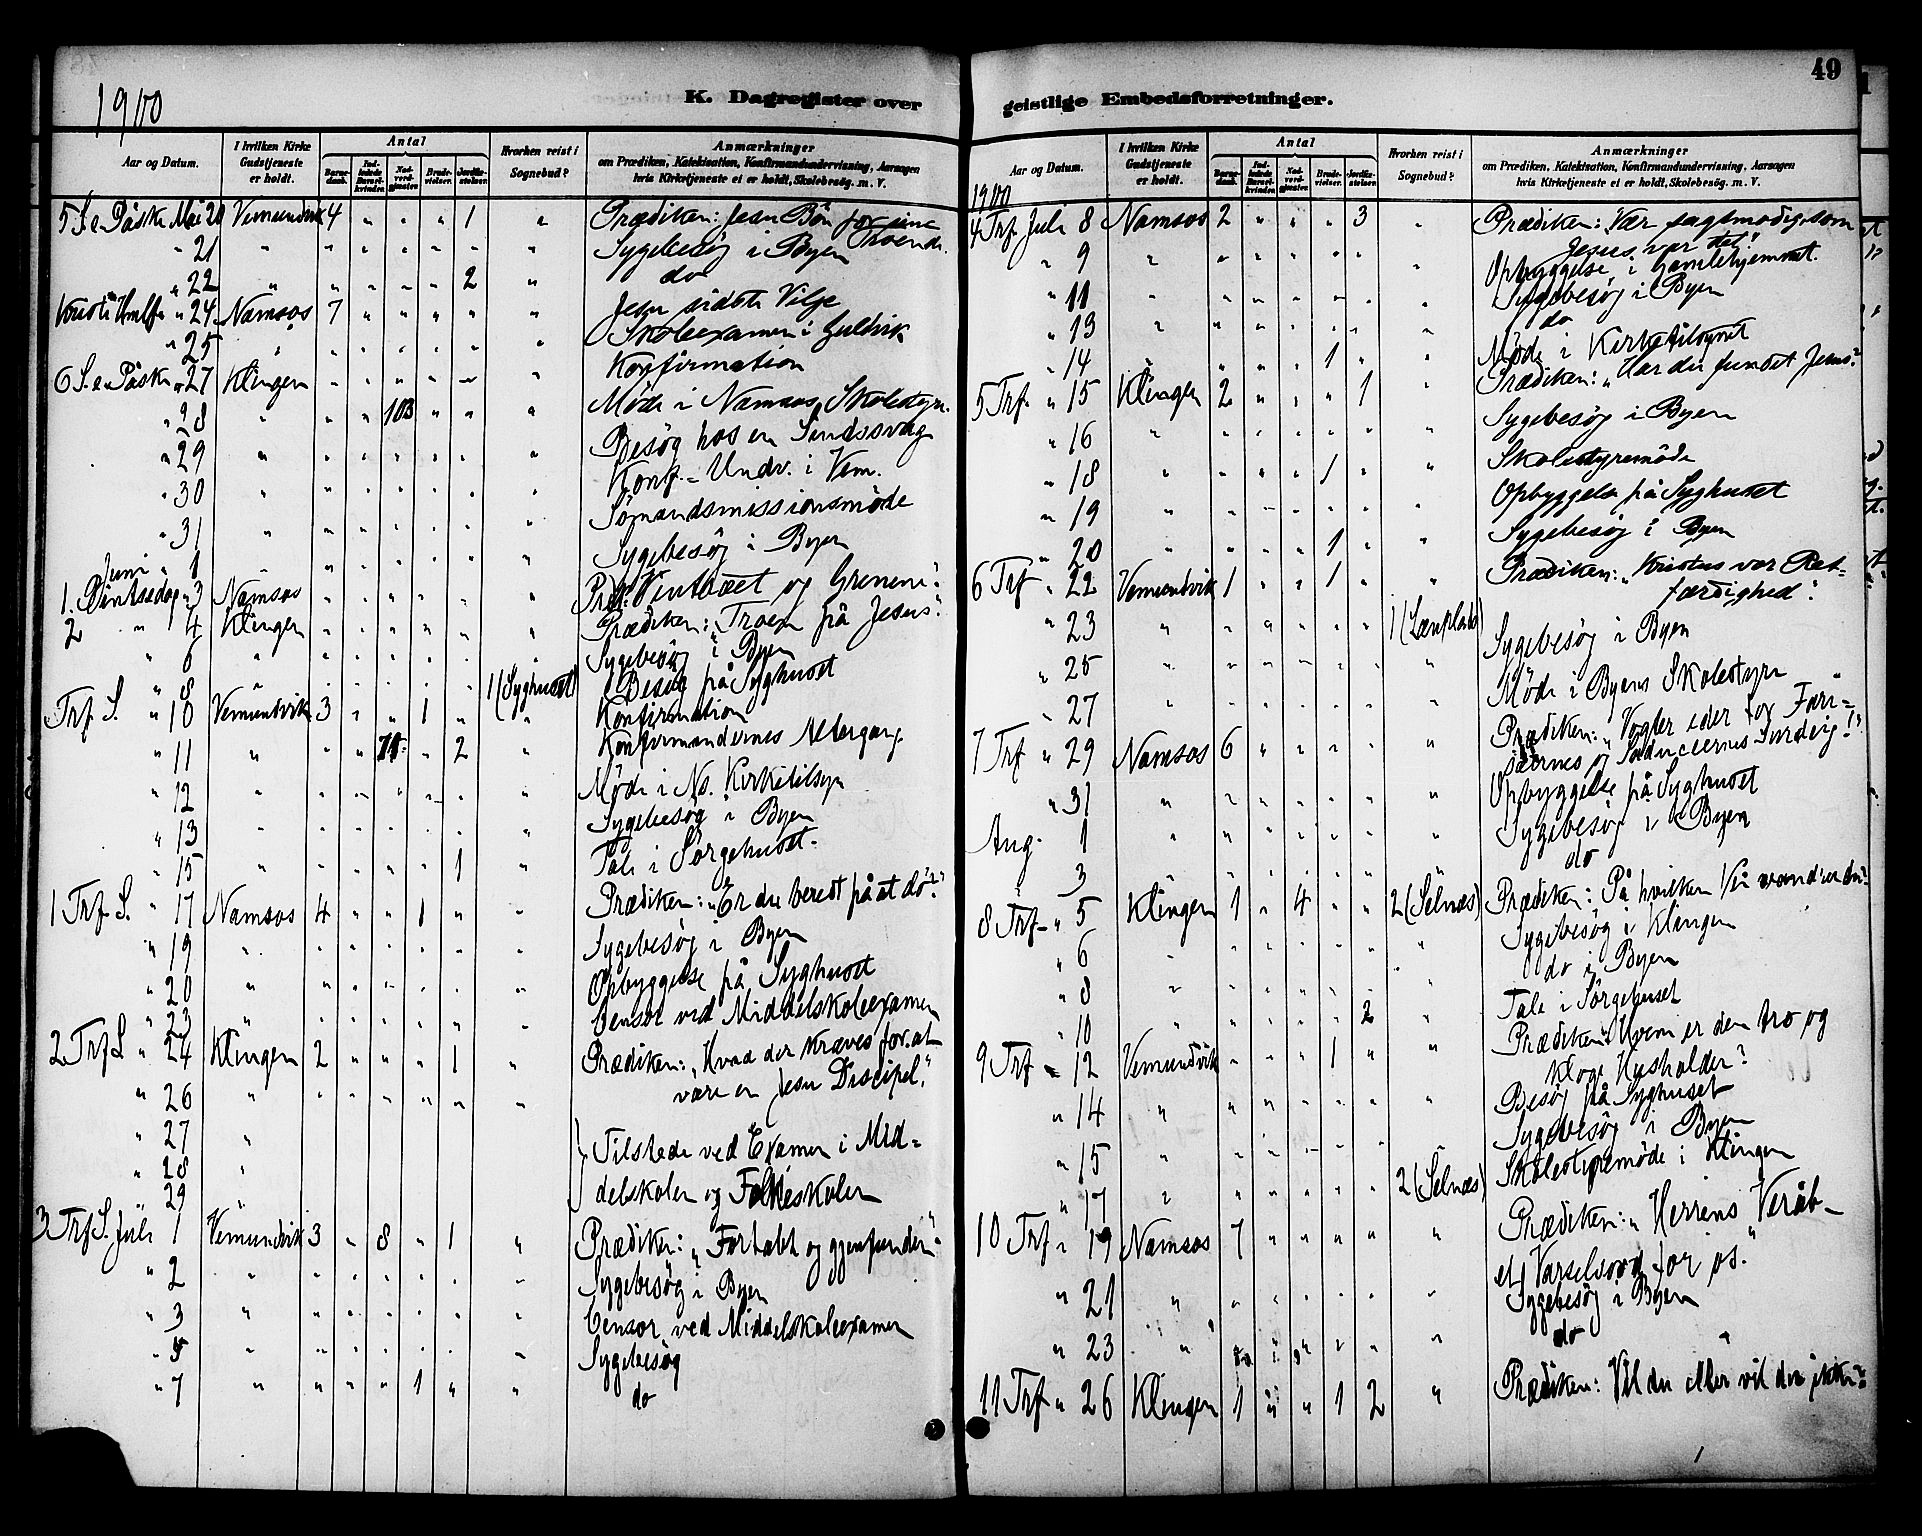 1900
K. Dagregister over
Aar og Datum. I hvilken Kirke Gudstjeneste er holdt. Antal Barnedaab. Indledede Barselkvinder. Nadverdgjæster. Brudevielser. Jordfæstelser. Hvorhen reist i Sognebud? Anmærkninger
om Prædiken, Katekisation, Konfirmandundervisning, Aarsagen
hvis Kirketjeneste ei er holdt, Skolebesøg. m. V.
5 S. e Påske Mai 20 Vemundvik 4 " " " 1 " Prædiken: Jesu Bön for sine Troende.
" 21 " " " " " " " Sygebesög i Byen
" 22 " " " " " 2 " do
Kristi Hmlf " 24 Namsos 7 " " " " " Jesu sidste Vilje
" 25 " " " " " " " Skoleexamen i Guldvik
6 S. e Påske " 27 Klingen " " " " " " Konfirmation
" 28 " " " 103 " " " Möde i Namsos Skolestyre.
" 29 " " " " " " " Besög hos en Sindssvag
" 30 " " " " " " " Konf.-Undv. i Vem.
" 31 " " " " " " " Sömandsmissionsmöde
Juni " 1 " " " " " " Sygebesög i Byen
1. Pintsedag " 3 Namsos " " " " " " Præd: "Vintræet og Grenene"
2 " " 4 Klingen " " " " " " Prædiken: "Troen på Jesus"
" 6 " " " " " " " Sygebesög i Byen
" 8 " " " " " " 1 (Syghuset) Besög på Syghuset
Trf. S. " 10 Vemundvik 3 " " 1 " " Konfirmation
" 11 " " " 71 " 2 " Konfirmandernes Altergang.
" 12 " " " " " " " Möde i Ns. Kirketilsyn
" 13 " " " " " " " Sygebesög i Byen
" 15 " " " " " 1 " Tale i Sörgehuset.
1 Trf. S. " 17 Namsos 4 " " 1 " " Prædiken: "Er du beredt på at dö?"
" 19 " " " " " " " Sygebesög i Byen
" 20 " " " " " " " Opbyggelse på Syghuset
" 23 " " " " " " " Censor ved Middelskoleexamen
2 Trf S " 24 Klingen 2 " " " 1 " Prædiken: "Hvad der kræves for at
være en Jesu Discipel."
" 26 " " " " " " "
" 27 " Tilstede ved Examen i Mid=
" 28 "
" 29 " delskolen og Folkeskolen
3 Trf S. Juli 1 Vemundvik 3 " 8 " 1 " Prædiken: "Fortabt og gjenfunden"
" 2 " " " " " " " Sygebesög i Byen
" 3 " " " " " " " Censor ved Middelskoleexamen
" 5 " " " " " " " Sygebesög
" 7 " " " " 1 " " do
49
geistlige Embedsforretninger.
Aar og Datum. I hvilken Kirke Gudstjeneste er holdt. Antal Barnedaab. Indledede Barselkvinder. Nadverdgjæster. Brudevielser. Jordfæstelser. Hvorhen reist i Sognebud? Anmærkninger
om Prædiken, Katekisation, Konfirmandundervisning, Aarsagen
hvis Kirketjeneste ei er holdt, Skolebesøg. m. V.
1900
4 Trf. Juli 8 Namsos 2 " " " 3 " Prædiken: "Vær sagtmodig som
Jesus var det"
" 9 " " " " " " " Opbyggelse i Gamlehjemmet.
" 11 " " " " " " " Sygebesög i Byen
" 13 " " " " " " " do
" 14 " " " " 1 " " Möde i Kirketilsynet
5 Trf. " 15 Klingen 2 " " " 1 " Prædiken: "Har du fundet Jesus?"
" 16 " " " " " " " Sygebesög i Byen
" 18 " " " " 1 " " Skolestyremöde
" 19 " " " " " " " Opbyggelse på Syghuset
" 20 " " " " 1 " " Sygebesög i Byen
6 Trf " 22 Vemundvik 1 " " 1 " " Prædiken: "Kristus vor Ret-
færdighed"
" 23 " " " " " " 1 Sygebesög i Byen
" 25 " " " " " " " Möde i Byens Skolestyre
" 27 " " " " " " "
7 Trf " 29 Namsos 6 " " " " " Prædiken: "Vogter eder for Fari=
sæernes og Sadducæernes Surdeig!"
" 31 " " " " " " " Opbyggelse på Syghuset
Aug. 1 " " " " " " " Sygebesög i Byen
3 " " " " " " " do
8 Trf " 5 Klingen 1 " 4 " " 2 (Selnæs) Prædiken: "På hvilken Vei vandrer du?"
" 6 " " " " " " " Sygebesög i Klingen
" 8 " " " " " " " do i Byen
" 10 " " " " " 2 " Tale i Sörgehuset
9 Trf " 12 Vemundvik " " " 1 " " Prædiken: "Hvem er den tro og
kloge Husholder"?
" 14 " " " " " " " Besög på Syghuset
" 15 " " " " " " " Sygebesög i Byen
" 17 " " " " " " 2 (Selnæs) Skolestyremöde i Klingen
10 Trf " 19 Namsos 7 " " " " " Prædiken: "Herrens Veråb-
et Varselsord for os."
" 21 " " " " " " " Sygebesög i Byen
" 23 " " " " " " " do
11 Trf " 26 Klingen 1 " " 1 2 " Prædiken: "Vil du eller vil du ikke?"